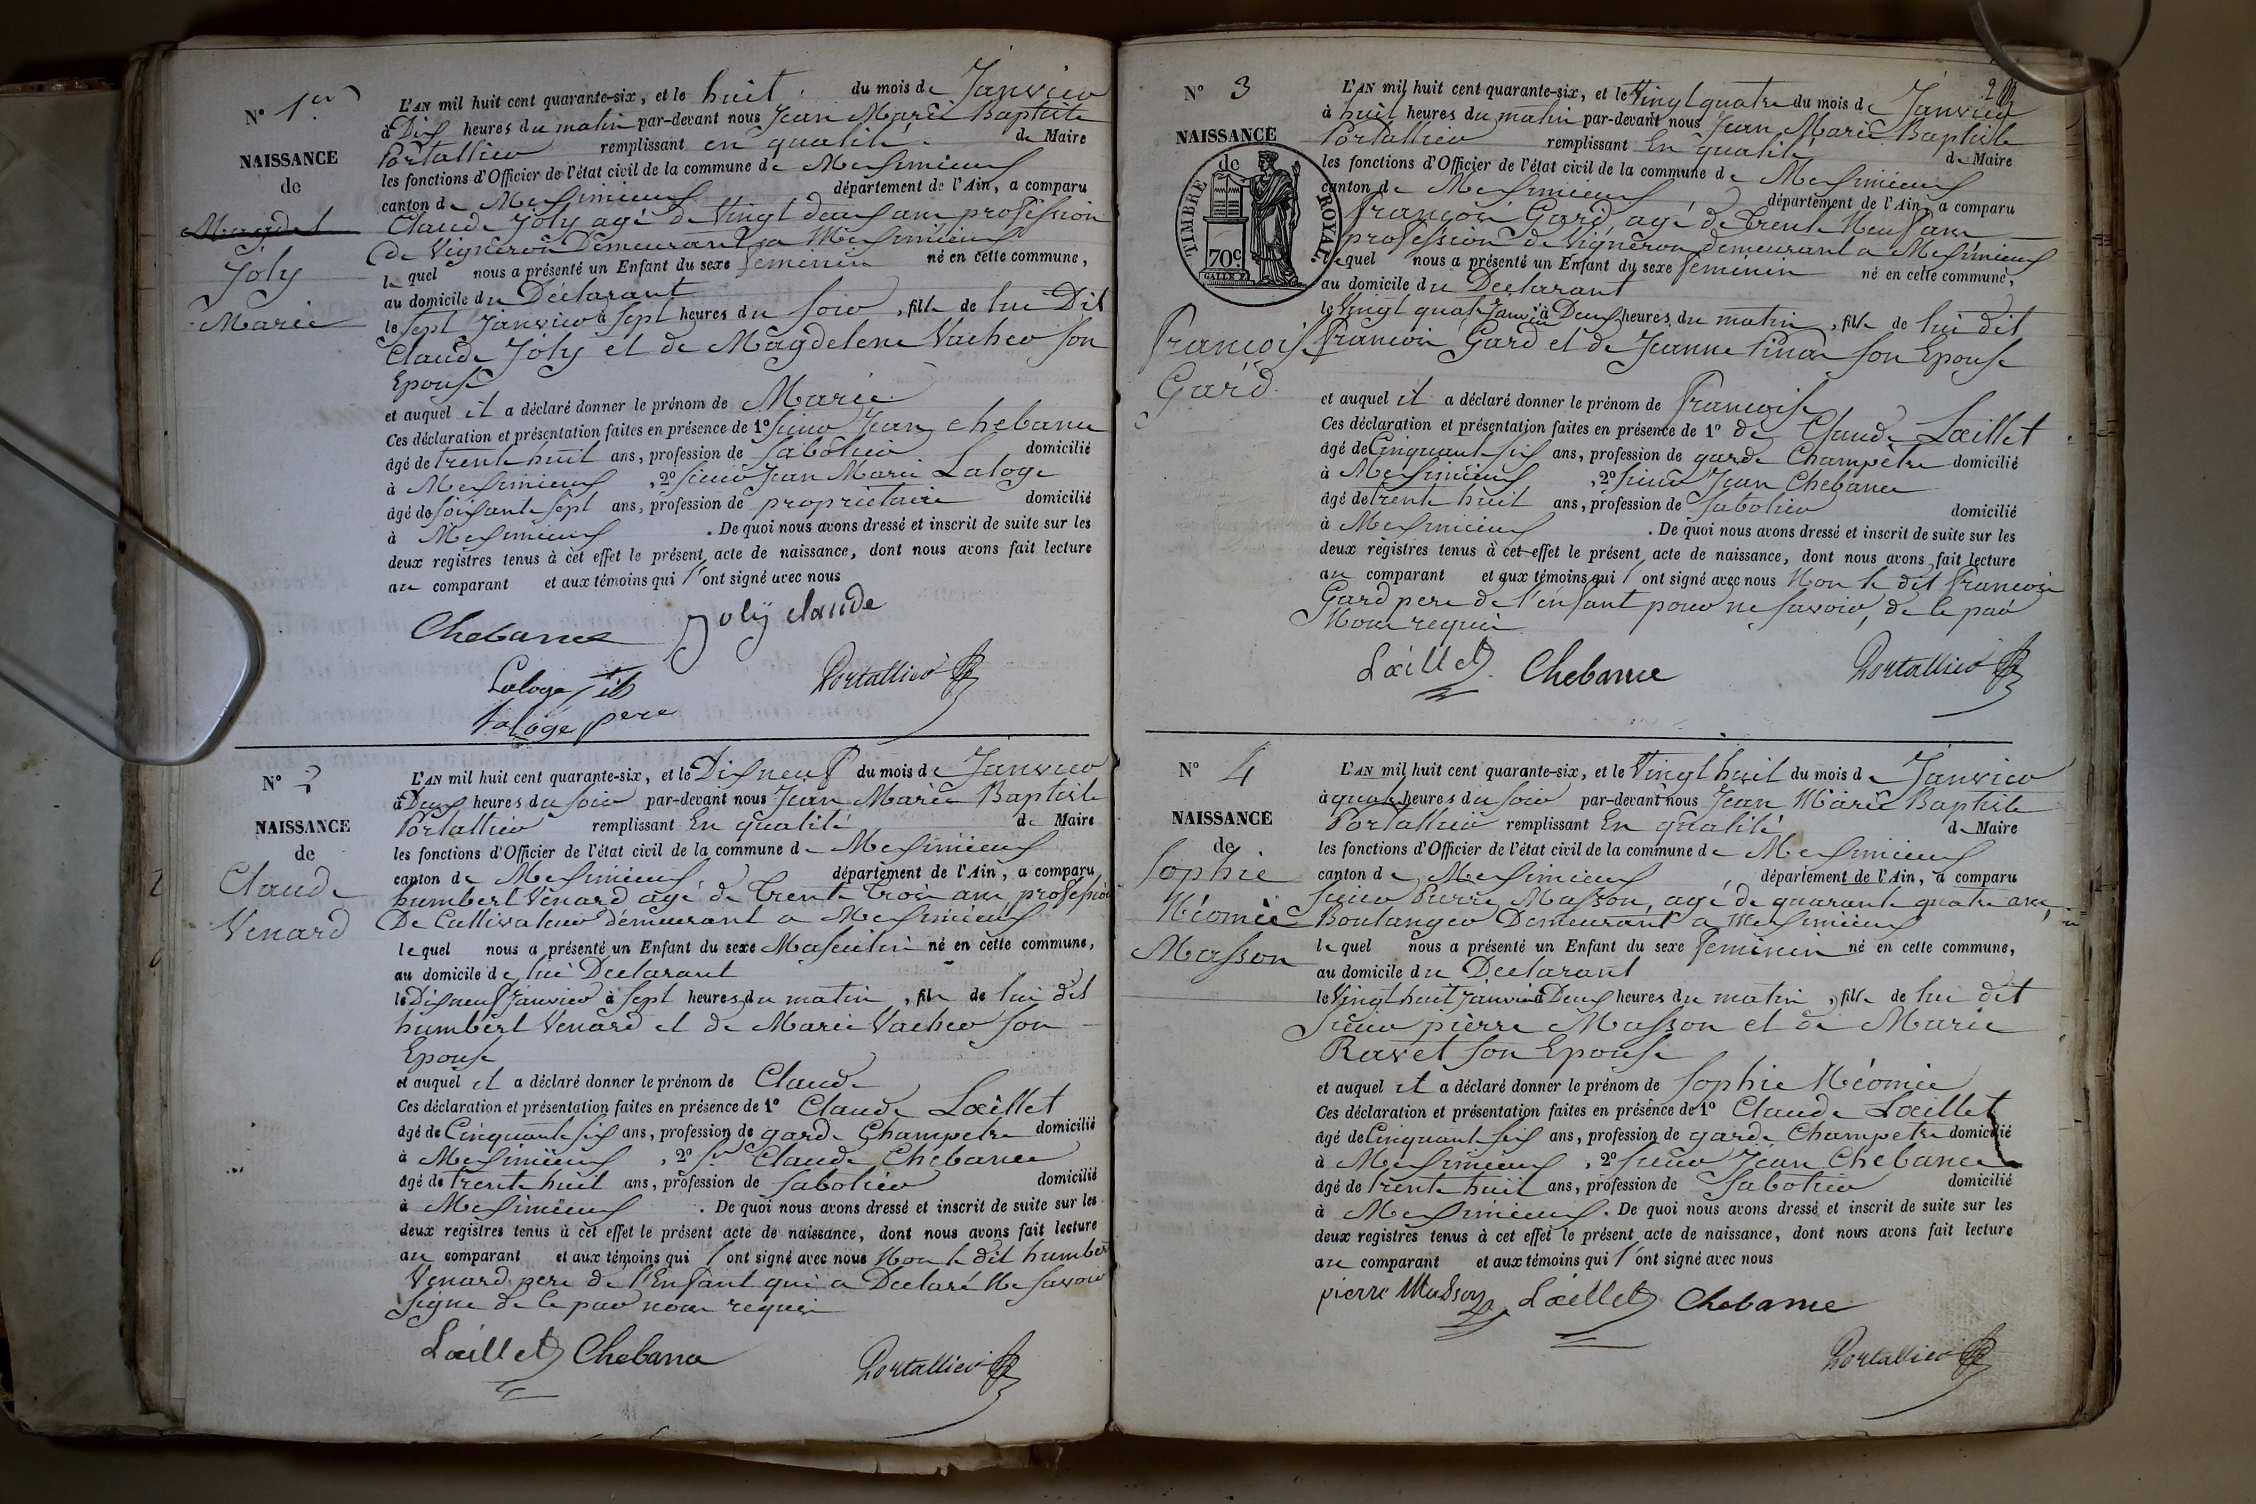 N° 1er
NAISSANCE
de
Magdel
Joly
Marie
L'AN mil huit cent quarante-six, et le huit du mois de Janvier
à Dix heures du matin par-devant nous Jean Marie Baptiste
Portallier remplissant en qualité de Maire
les fonctions d'Officier de l'état civil de la commune de Meximieux
canton de Meximieux département de l'Ain, a comparu
Claude Joly agé de Vingt deux ans profession
de Vigneron Demeurant a Meximieux
le quel nous a présenté un Enfant du sexe femenin né en cette commune,
au domicile du Déclarant
le sept Janvier à sept heures du soir, fille de lui Dit
Claude Joly et de Magdelene Vacher son
Epouse
et auquel il a déclaré donner le prénom de Marie
Ces déclaration et présentation faites en présence de 1° sieur Jean chebance
âgé de trente huit ans, profession de sabotier domicilié
à Meximieux, 2° sieur Jean Marie Laloge
âgé de soisante sept ans, profession de propriétaire domicilié
à Meximieux. De quoi nous avons dressé et inscrit de suite sur les
deux registres tenus à cet effet le présent acte de naissance, dont nous avons fait lecture
au comparant et aux témoins qui l'ont signé avec nous
Chebance Joly claude
Laloge fils Portallier
Laloge pere
N° 2
NAISSANCE
de
Claude
Venard
L'AN mil huit cent quarante-six, et le Dixneuf du mois de Janvier
à Deux heures du soir par-devant nous Jean Marie Baptiste
Portallier remplissant En qualité de Maire
les fonctions d'Officier de l'état civil de la commune de Meximieux
canton de Meximieux département de l'Ain, a comparu
humbert Venard agé de trente trois ans profession
De Cultivateur démeurant a Meximieux
le quel nous a présenté un Enfant du sexe Masculin né en cette commune,
au domicile de lui Declarant
le Dixneuf Janvier à sept heures du matin, fils de lui dit
humbert Venard et de Marie Vacher son
Epouse
et auquel il a déclaré donner le prénom de Claude
Ces déclaration et présentation faites en présence de 1° Claude Lœillet
âgé de Cinquante six ans, profession de garde Champetre domicilié
à Meximieux, 2° Sr Claude Chebance
âgé de trente huit ans, profession de sabotier domicilié
à Meximieux. De quoi nous avons dressé et inscrit de suite sur les
deux registres tenus à cet effet le présent acte de naissance, dont nous avons fait lecture
au comparant et aux témoins qui l'ont signé avec nous Non le dit humbert
Venard pere de l'Enfant qui a Declaré Ne savoir
signe de le par nous requis
Lœillet Chebance Portallier
N° 3
NAISSANCE
de
TIMBRE ROYAL
70c.
François
Gard
L'AN mil huit cent quarante-six, et le Vingt quatre du mois de Janvier
à huit heures du matin par-devant nous Jean Marie Baptiste
Portallier remplissant En qualité de Maire
les fonctions d'Officier de l'état civil de la commune de Meximieux
canton de Meximieux département de l'Ain, a comparu
françois Gard, agé de trente Neuf ans
profession de Vigneron demeurant a Meximieux
le quel nous a présenté un Enfant du sexe feminin né en cette commune,
au domicile du Declarant
le Vingt quatre Janvier à Deux heures du matin, fille de lui dit
francois Gard et de Jeanne son Epouse
et auquel il a déclaré donner le prénom de francoise
Ces déclaration et présentation faites en présence de 1° de Claude Lœillet
âgé de Cinquante six ans, profession de garde Champètre domicilié
à Meximieux, 2° sieur Jean Chebance
âgé de trente huit ans, profession de sabotier domicilié
à Meximieux. De quoi nous avons dressé et inscrit de suite sur les
deux registres tenus à cet effet le présent acte de naissance, dont nous avons fait lecture
au comparant et aux témoins qui l'ont signé avec nous Non le dit francois
Gard pere de l'enfant pour ne savoir, de le par
Nous requis
Lœillet Chebance Portallier
N° 4
NAISSANCE
de
Sophie
Néomie
Masson
L'AN mil huit cent quarante-six, et le Vingt huit du mois de Janvier
à quatre heures du soir par-devant nous Jean Marie Baptiste
Portallier remplissant En qualité de Maire
les fonctions d'Officier de l'état civil de la commune de Meximieux
canton de Meximieux département de l'Ain, a comparu
sieur Pierre Masson, agé de quarante quatre ans,
Boulanger Demeurant a Meximieux
le quel nous a présenté un Enfant du sexe feminin né en cette commune,
au domicile du Declarant
le Vingt huit Janvier à Deux heures du matin, fille de lui dit
sieur pièrre Masson et de Marie
Ravet son Epouse
et auquel il a déclaré donner le prénom de Sophie Néomie
Ces déclaration et présentation faites en présence de 1° Claude Lœillet
âgé de Cinquante six ans, profession de garde Champetre domicilié
à Meximieux, 2° sieur Jean Chebance
âgé de trente huit ans, profession de Sabotier domicilié
à Meximieux. De quoi nous avons dressé et inscrit de suite sur les
deux registres tenus à cet effet le présent acte de naissance, dont nous avons fait lecture
au comparant et aux témoins qui l'ont signé avec nous
pierre Masson Lœillet Chebance
Portallier